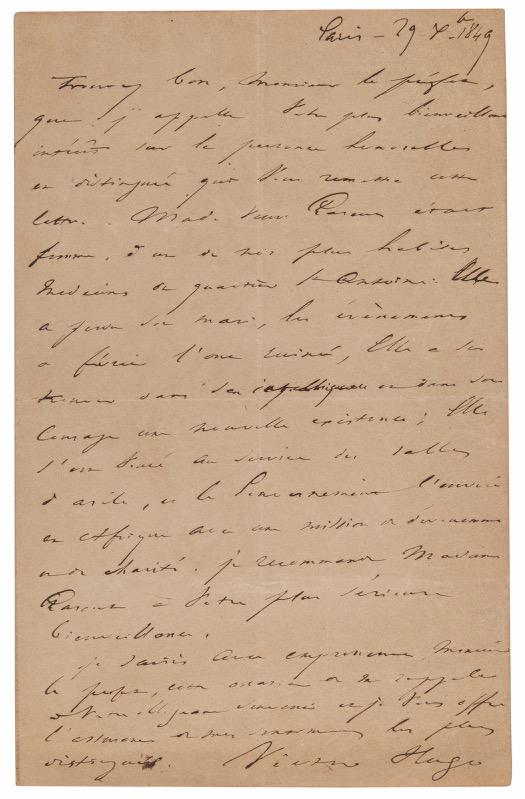 Paris - 29 Xbre 1849
Trouvez bon, Monsieur le préfet,
que j'appelle Votre plus bienveillant
intérêt sur la personne honorable
et distinguée qui Vous remettra cette
lettre. Made Veuve était
femme d'un de nos plus habiles
médecins du quartier St Antoine. Elle
a perdu son mari, les évènements
de février l'ont ruinée, Elle a su
trouver dans son intelligence et dans son
courage une nouvelle existence ; Elle
s'est vouée au service des salles
d'asile, et le Gouvernement l'envoie
en Afrique avec une mission de dévouement
et de charité. je recommande Madame
à Votre plus sérieuse
bienveillance.
je saisis avec empressement, Monsieur
le préfet, cette occasion de me rappeler
à Votre souvenir et je Vous offre
l'assurance de mes sentiments les plus
distingués. Victor Hugo